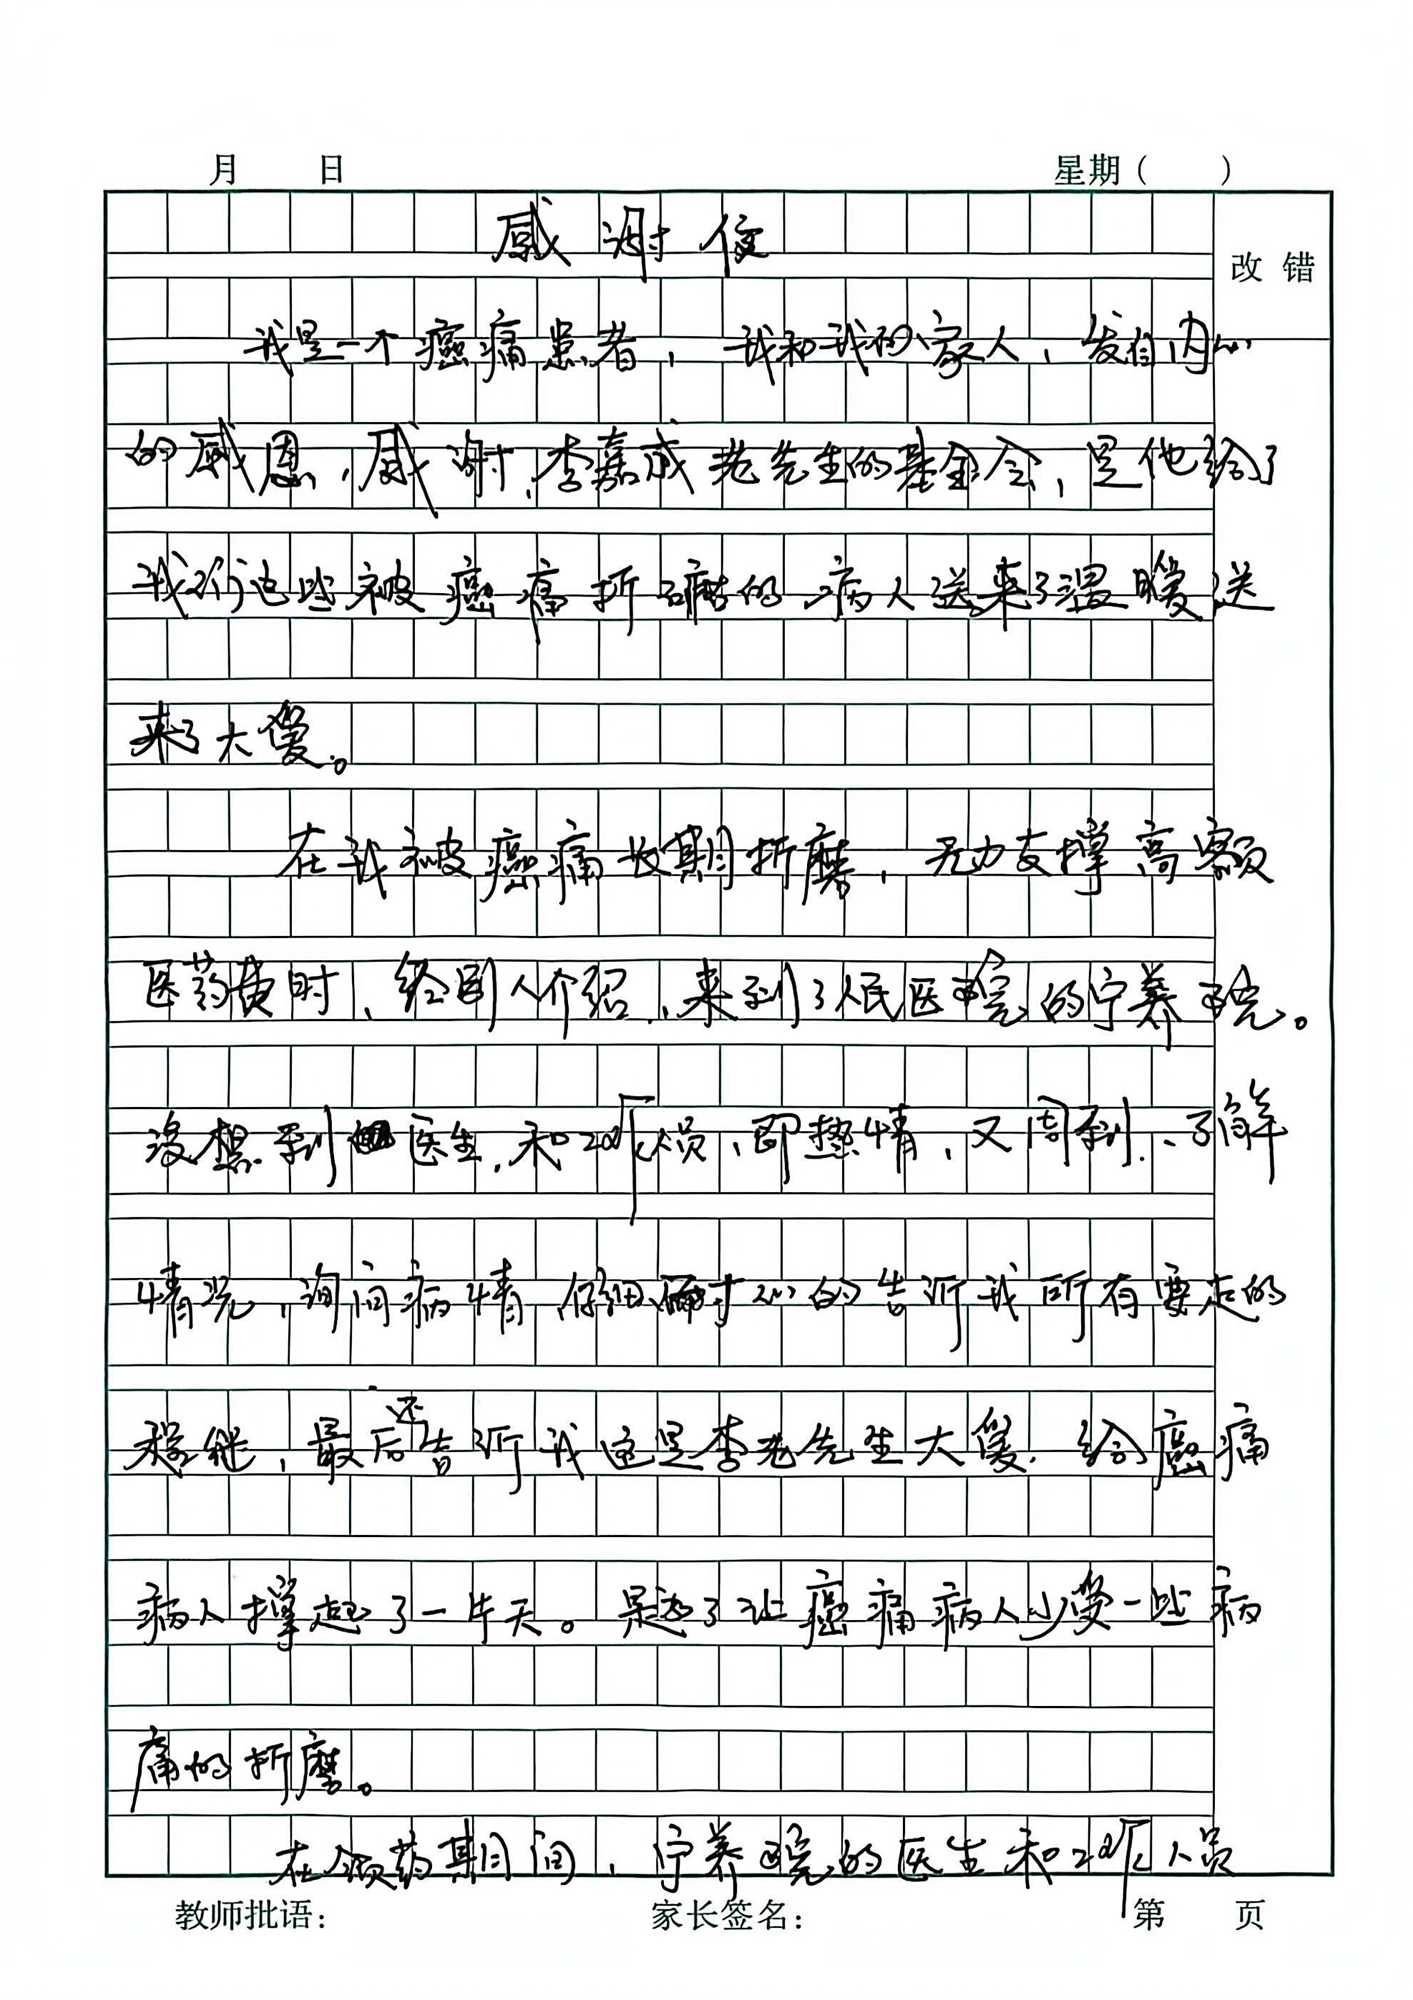 月 日 星期( )
感谢信
改错
我是一个癌痛患者,我和我的家人,发自内心
的感恩,感谢,李嘉诚老先生的基金会,是他给了
我们这些被癌痛折磨的病人送来了温暖送
来了大爱。
在我被癌痛长期折磨,无力支撑高额
医药费时,经别人介绍,来到了人民医院的宁养院。
没想到医生,和工作人员,即热情,又周到,了解
情况,询问病情,仔细耐心的告诉我所有要走的
程继,最后还告诉我这是李老先生大爱,给癌痛
病人撑起了一片天。是为了让癌痛病人少受一些病
痛的折磨。
在领药期间,宁养院的医生和工作人员
教师批语: 家长签名: 第 页